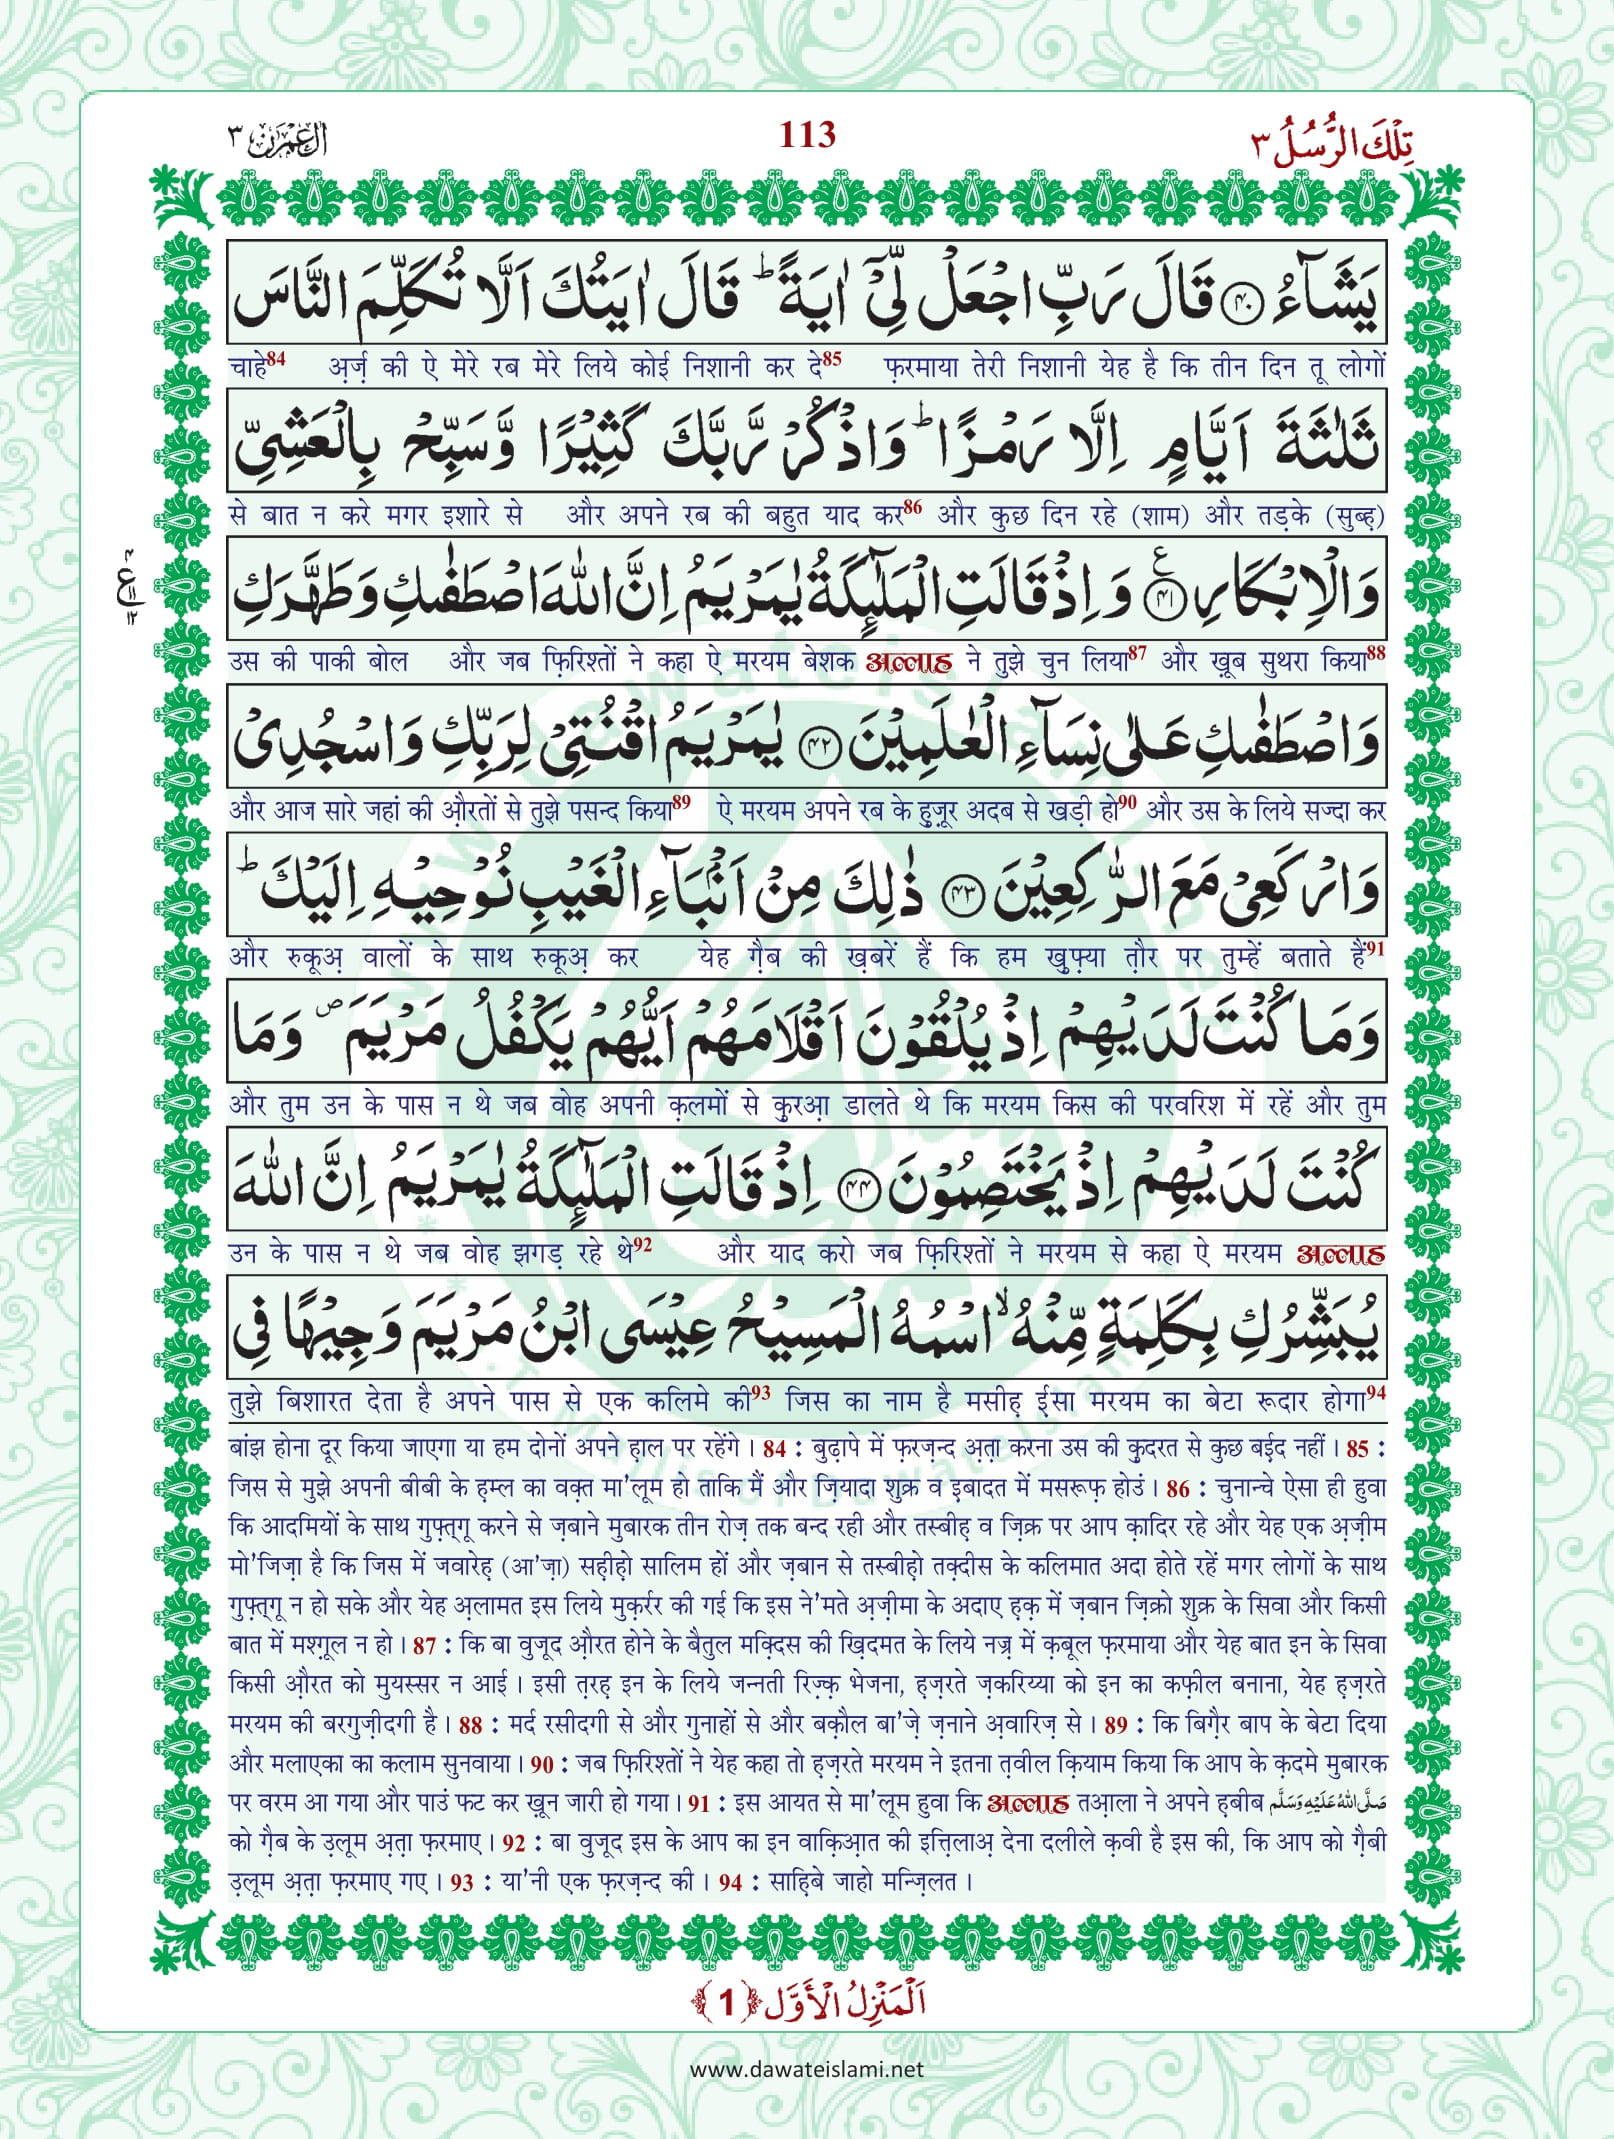 اٰل عمرٰن ٣
113
تِلْكَ الرُّسُلُ ٣
يَشَآءُ ﴿۴۰﴾ قَالَ رَبِّ اجْعَلْ لِّیْۤ اٰيَةً ؕ قَالَ اٰيَتُكَ اَلَّا تُكَلِّمَ النَّاسَ
चाहे84 अ़र्ज़ की ऐ मेरे रब मेरे लिये कोई निशानी कर दे85 फ़रमाया तेरी निशानी येह है कि तीन दिन तू लोगों
ثَلٰثَةَ اَيَّامٍ اِلَّا رَمْزًا ؕ وَاذْكُرْ رَّبَّكَ كَثِيْرًا وَّسَبِّحْ بِالْعَشِیِّ
से बात न करे मगर इशारे से और अपने रब की बहुत याद कर86 और कुछ दिन रहे (शाम) और तड़के (सुब्ह़)
وَالْاِبْكَارِ ﴿۴۱﴾ ع وَاِذْ قَالَتِ الْمَلٰٓئِكَةُ يٰمَرْيَمُ اِنَّ اللّٰهَ اصْطَفٰىكِ وَطَهَّرَكِ
उस की पाकी बोल और जब फ़िरिश्तों ने कहा ऐ मरयम बेशक अल्लाह ने तुझे चुन लिया87 और ख़ूब सुथरा किया88
وَاصْطَفٰىكِ عَلٰى نِسَآءِ الْعٰلَمِيْنَ ﴿۴۲﴾ يٰمَرْيَمُ اقْنُتِیْ لِرَبِّكِ وَاسْجُدِیْ
और आज सारे जहां की औ़रतों से तुझे पसन्द किया89 ऐ मरयम अपने रब के हुज़ूर अदब से खड़ी हो90 और उस के लिये सज्दा कर
وَارْكَعِیْ مَعَ الرّٰكِعِيْنَ ﴿۴۳﴾ ذٰلِكَ مِنْ اَنْۢبَآءِ الْغَيْبِ نُوْحِيْهِ اِلَيْكَ ؕ
और रुकूअ़ वालों के साथ रुकूअ़ कर येह ग़ैब की ख़बरें हैं कि हम ख़ुफ़्या त़ौर पर तुम्हें बताते हैं91
وَمَا كُنْتَ لَدَيْهِمْ اِذْ يُلْقُوْنَ اَقْلَامَهُمْ اَيُّهُمْ يَكْفُلُ مَرْيَمَ ۪ وَمَا
और तुम उन के पास न थे जब वोह अपनी क़लमों से क़ुरआ़ डालते थे कि मरयम किस की परवरिश में रहें और तुम
كُنْتَ لَدَيْهِمْ اِذْ يَخْتَصِمُوْنَ ﴿۴۴﴾ اِذْ قَالَتِ الْمَلٰٓئِكَةُ يٰمَرْيَمُ اِنَّ اللّٰهَ
उन के पास न थे जब वोह झगड़ रहे थे92 और याद करो जब फ़िरिश्तों ने मरयम से कहा ऐ मरयम अल्लाह
يُبَشِّرُكِ بِكَلِمَةٍ مِّنْهُ ۙ اسْمُهُ الْمَسِيْحُ عِيْسَى ابْنُ مَرْيَمَ وَجِيْهًا فِی
तुझे बिशारत देता है अपने पास से एक कलिमे की93 जिस का नाम है मसीह़ ई़सा मरयम का बेटा रूदार होगा94
बांझ होना दूर किया जाएगा या हम दोनों अपने ह़ाल पर रहेंगे । 84 : बुढ़ापे में फ़रज़न्द अ़त़ा करना उस की क़ुदरत से कुछ बई़द नहीं । 85 :
जिस से मुझे अपनी बीबी के ह़म्ल का वक़्त मा'लूम हो ताकि मैं और ज़ियादा शुक्र व इ़बादत में मसरूफ़ होउं । 86 : चुनान्चे ऐसा ही हुवा
कि आदमियों के साथ गुफ़्त्गू करने से ज़बाने मुबारक तीन रोज़ तक बन्द रही और तस्बीह़ व ज़िक्र पर आप क़ादिर रहे और येह एक अ़ज़ीम
मो'जिज़ा है कि जिस में जवारेह़ (आ'ज़ा) सह़ीह़ो सालिम हों और ज़बान से तस्बीह़ो तक़्दीस के कलिमात अदा होते रहें मगर लोगों के साथ
गुफ़्त्गू न हो सके और येह अ़लामत इस लिये मुक़र्रर की गई कि इस ने'मते अ़ज़ीमा के अदाए ह़क़ में ज़बान ज़िक्रो शुक्र के सिवा और किसी
बात में मश्ग़ूल न हो । 87 : कि बा वुजूद औ़रत होने के बैतुल मक़्दिस की ख़िदमत के लिये नज़्र में क़बूल फ़रमाया और येह बात इन के सिवा
किसी औ़रत को मुयस्सर न आई । इसी त़रह़ इन के लिये जन्नती रिज़्क़ भेजना, ह़ज़रते ज़करिय्या को इन का कफ़ील बनाना, येह ह़ज़रते
मरयम की बरगुज़ीदगी है । 88 : मर्द रसीदगी से और गुनाहों से और बक़ौल बा'ज़े ज़नाने अ़वारिज़ से । 89 : कि बिग़ैर बाप के बेटा दिया
और मलाएका का कलाम सुनवाया । 90 : जब फ़िरिश्तों ने येह कहा तो ह़ज़रते मरयम ने इतना त़वील क़ियाम किया कि आप के क़दमे मुबारक
पर वरम आ गया और पाउं फट कर ख़ून जारी हो गया । 91 : इस आयत से मा'लूम हुवा कि अल्लाह तआ़ला ने अपने ह़बीब صَلَّى اللهُ عَلَيْهِ وَسَلَّم
को ग़ैब के उ़लूम अ़त़ा फ़रमाए । 92 : बा वुजूद इस के आप का इन वाक़िआ़त की इत्तिलाअ़ देना दलीले क़वी है इस की, कि आप को ग़ैबी
उ़लूम अ़त़ा फ़रमाए गए । 93 : या'नी एक फ़रज़न्द की । 94 : साह़िबे जाहो मन्ज़िलत ।
اَلْمَنْزِلُ الْاَوَّل ﴿1﴾
www.dawateislami.net